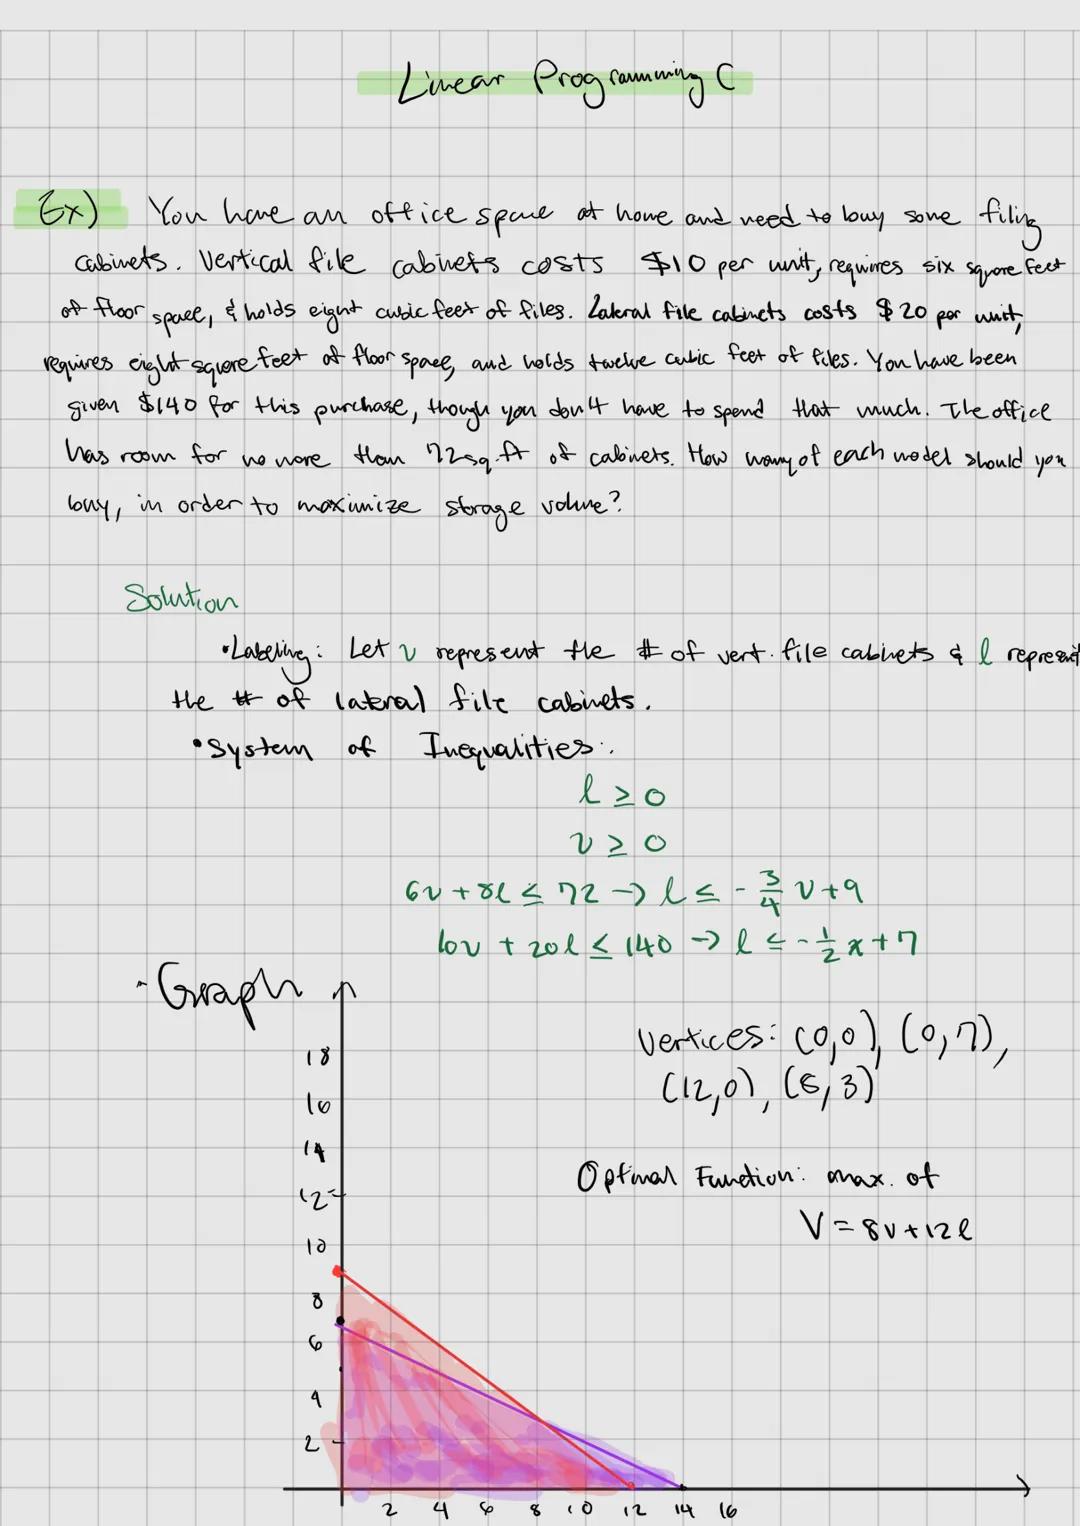 Linear Programming C
Ex) You have an office space at home and need to buy some filing
cabinets. Vertical file cabinets costs $10 per unit, requires six square feet
of floor space, & holds eight cubic feet of files. Lateral file cabinets costs $20 per unit,
requires eight square feet of floor space, and holds twelve cubic feet of files. You have been
given $140 for this purchase, though you don't have to spend that much. The office
has room for no more than 72 sq. ft of cabinets. How many of each model should you
buy, in order to maximize storage volume?
Solution
• Labeling: Let v represent the # of vert. file cabinets & l represent
the # of lateral file cabinets.
• System of Inequalities:
l ≥ 0
v ≥ 0
6v + 8l ≤ 72 → l ≤ - 3/4 v + 9
10v + 20l ≤ 140 → l ≤ - 1/2 x + 7
· Graph
Vertices: (0,0), (0,7),
(12,0), (8,3)
Optimal Function: max. of
V = 8v + 12l
18
16
14
12
10
8
6
4
2
2 4 6 8 10 12 14 16